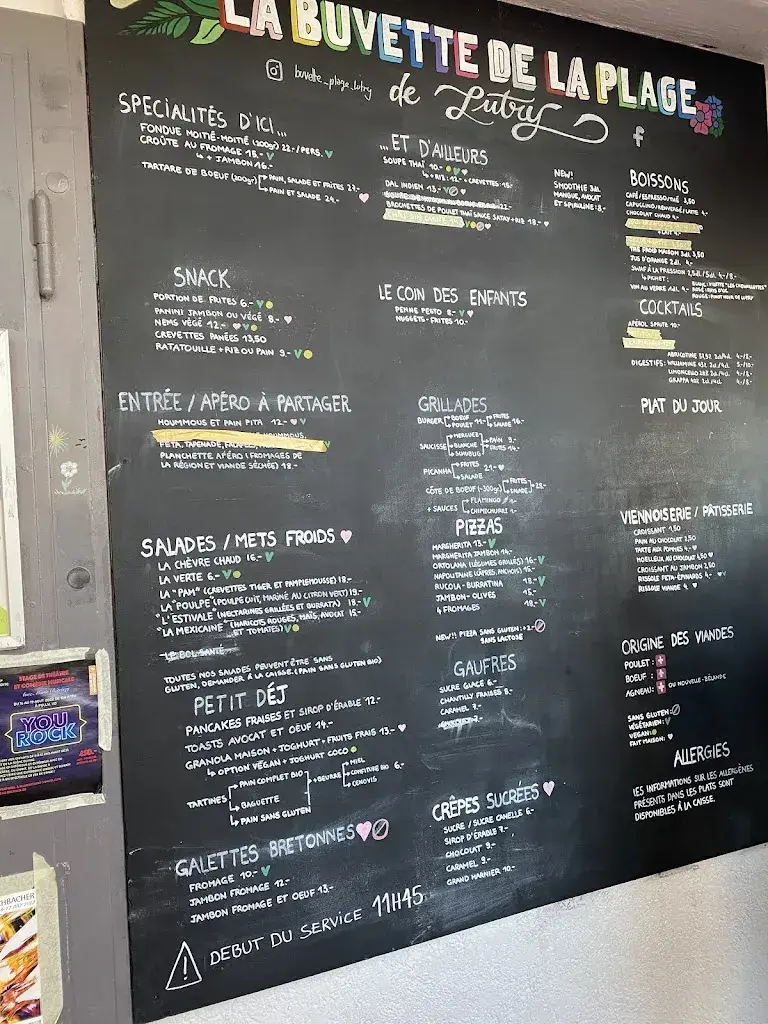 LA BUVETTE DE LA PLAGE
buvette_plage_lutry
de Lutry
SPECIALITÉS D'ICI...
FONDUE MOITIÉ-MOITIÉ (200gr) 22.-/PERS. V
CROÛTE AU FROMAGE 15.- V
↳ + JAMBON 16.-
TARTARE DE BOEUF (200gr)
PAIN, SALADE ET FRITES 27.-
PAIN ET SALADE 24.-
...ET D'AILLEURS
SOUPE THAÏ 10.-
↳ + RIZ: 12.- + CREVETTES: 15.-
DAL INDIEN 13.- V
BROCHETTES DE POULET THAÏ SAUCE SATAY + RIB 18.-
NEW!
SMOOTHIE 3dl
MANGUE, AVOCAT
ET SPIRULINE: 8.-
BOISSONS
CAFÉ/ESPRESSO/THÉ 3,50
CAPUCCINO/RENVERSÉ/LATTE 4.-
CHOCOLAT CHAUD 4.-
THÉ FROID MAISON 3dl 3,50
JUS D'ORANGE 2dl 4.-
SWAF À LA PRESSION 2,5dl/5dl 4.-/8.-
↳ PICHET:
VIN AU VERRE 1dl 4.-
SNACK
PORTION DE FRITES 6.- V
PANINI JAMBON OU VÉGÉ 8.-
NEMS VÉGÉ 12.- V
CREVETTES PANÉES 13,50
RATATOUILLE + RIB OU PAIN 9.- V
LE COIN DES ENFANTS
PENNE PESTO 8.- V
NUGGETS-FRITES 10.-
COCKTAILS
APÉROL SPRITZ 10.-
DIGESTIFS:
ABRICOTINE 37,5% 2cl/4cl 4.-/8.-
WILLIAMINE 43% 2cl/4cl 5.-/10.-
LIMONCELLO 28% 2cl/4cl 4.-/8.-
GRAPPA 40% 2cl/4cl 4.-/8.-
ENTRÉE / APÉRO À PARTAGER
HOUMMOUS ET PAIN PITA 12.- V
PLANCHETTE APÉRO (FROMAGES DE
LA RÉGION ET VIANDE SÉCHÉE) 18.-
GRILLADES
BURGER
BOEUF
POULET 11.-
FRITES
SALADE 16.-
SAUCISSE
MERGUEZ
BLANCHE
SCHUBLIG
PAIN 9.-
FRITES 14.-
PICANHA
FRITES 21.-
SALADE
CÔTE DE BOEUF (~300gr)
FRITES
SALADE
+ SAUCES
FLAMINGO
CHIMICHURRI
PLAT DU JOUR
SALADES / METS FROIDS
LA CHÈVRE CHAUD 16.- V
LA VERTE 6.- V
LA "PAM" (CREVETTES TIGER ET PAMPLEMOUSSE) 18.-
LA "POULPE" (POULPE CUIT, MARINÉ AU CITRON VERT) 19.-
"L'ESTIVALE" (NECTARINES GRILLÉES ET BURRATA) 18.- V
"LA MEXICAINE" (HARICOTS ROUGES, MAÏS, AVOCAT 15.-
ET TOMATES) V
LE BOL SANTÉ
TOUTES NOS SALADES PEUVENT ÊTRE SANS
GLUTEN, DEMANDER À LA CAISSE. (PAIN SANS GLUTEN BIO)
PIZZAS
MARGHERITA 13.- V
MARGHERITA JAMBON 14.-
ORTOLANA (LÉGUMES GRILLÉS) 16.- V
NAPOLITAINE (CÂPRES, ANCHOIS) 15.-
RUCOLA - BURRATINA 18.- V
JAMBON - OLIVES 15.-
4 FROMAGES 18.- V
NEW!! PIZZA SANS GLUTEN: +2.-
SANS LACTOSE
VIENNOISERIE / PÂTISSERIE
CROISSANT 1,50
PAIN AU CHOCOLAT 2,50
TARTE AUX POMMES 4.-
MOELLEUX AU CHOCOLAT 2,50
CROISSANT AU JAMBON 2,50
RISSOLE FETA-ÉPINARDS 4.-
RISSOLE VIANDE 4.-
PETIT DÉJ
PANCAKES FRAISES ET SIROP D'ÉRABLE 12.-
TOASTS AVOCAT ET OEUF 14.-
GRANOLA MAISON + JOGHURT + FRUITS FRAIS 13.-
↳ OPTION VEGAN + JOGHURT COCO
TARTINES
PAIN COMPLET BIO
BAGUETTE
PAIN SANS GLUTEN
+ BEURRE
MIEL
CONFITURE BIO 6.-
CENOVIS
GAUFRES
SUCRE GLACE 6.-
CHANTILLY FRAISES 8.-
CARAMEL 7.-
ORIGINE DES VIANDES
POULET:
BOEUF:
AGNEAU: OU NOUVELLE-ZÉLANDE
SANS GLUTEN:
VÉGÉTARIEN: V
VEGAN:
FAIT MAISON:
ALLERGIES
LES INFORMATIONS SUR LES ALLERGÈNES
PRÉSENTS DANS LES PLATS SONT
DISPONIBLES À LA CAISSE.
GALETTES BRETONNES
FROMAGE 10.- V
JAMBON FROMAGE 12.-
JAMBON FROMAGE ET OEUF 13.-
CRÊPES SUCRÉES
SUCRE / SUCRE CANELLE 6.-
SIROP D'ÉRABLE 7.-
CHOCOLAT 9.-
CARAMEL 9.-
GRAND MARNIER 10.-
! DEBUT DU SERVICE 11H45
STAGE DE THÉÂTRE
ET COMÉDIE MUSICALE
YOU
ROCK